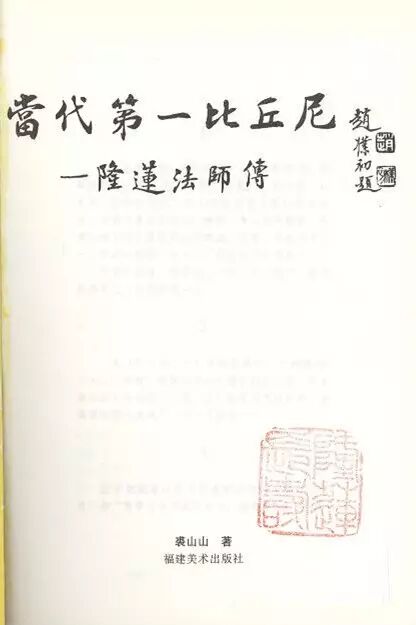 當代第一比丘尼
—隆蓮法師傳
趙樸初題
裘山山 著
福建美术出版社